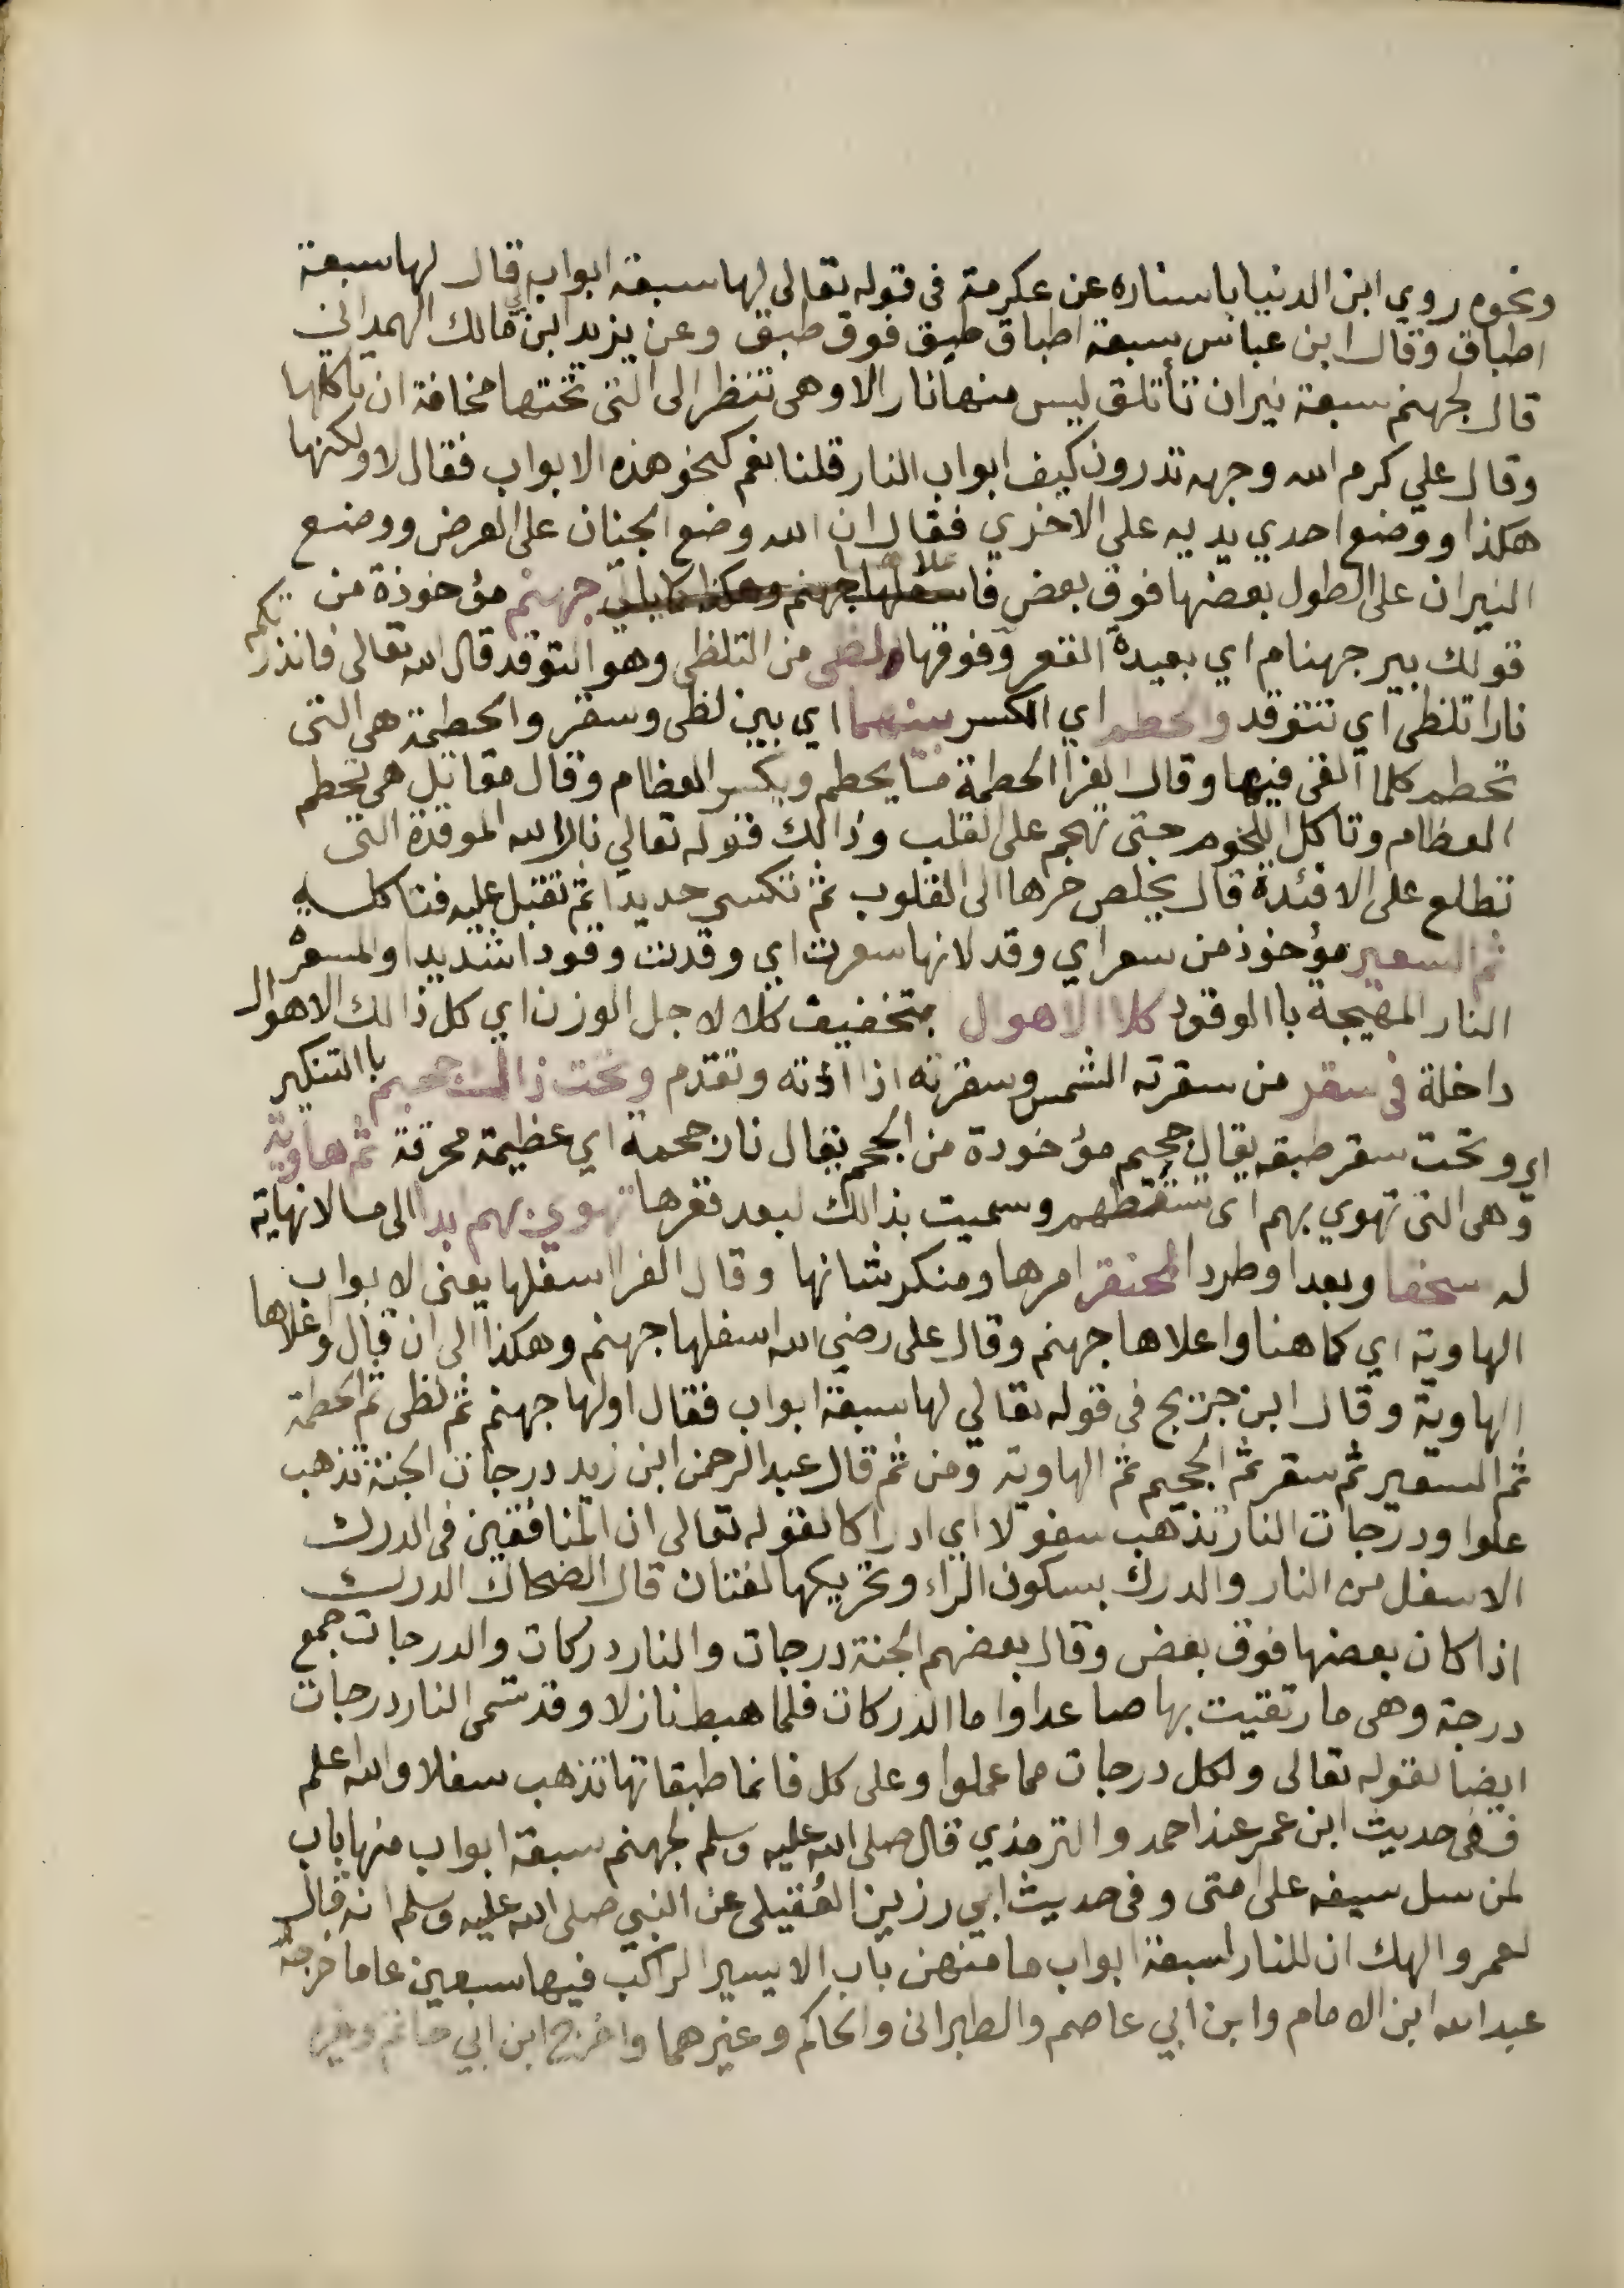 ونحوه روي ابن الدنيا باسناده عن عكرمة في قوله تعالى لها سبعة ابواب قال لها سبعة
اطباق وقال ابن عباس سبعة اطباق طبق فوق طبق وعن يزيد ابن ابي مالك الهمداني
قال لجهنم سبعة نيران تأتلق ليس منها نار الا وهى تنظر الى التى تحتها مخافة ان تاكلها
وقال علي كرم الله وجهه تدرون كيف ابواب النار قلنا نعم كنحو هذه الابواب فقال لا ولكنها
هكذا ووضع احدي يديه على الاخري فقال ان الله وضع الجنان على العرض ووضع
النيران على الطول بعضها فوق بعض فاسفلها علاها جهنم وهكذا كما يلي جهنم مؤخوذة من
قولك بير جهنام اي بعيدة القعر وفوقها لظى من التلظى وهو التوقد قال الله تعالى فانذرتكم
نارا تلظى اي تتوقد والحطم اي الكسر بينهما اي بين لظى وسقر والحطمة هى التى
تحطم كلما القى فيها وقال الفرا الحطمة مما يحطم ويكسر العظام وقال مقاتل هى تحطم
العظام وتاكل اللحوم حتى تهجم على القلب وذالك قوله تعالي نار الله الموقدة التى
تطلع على الافئدة قال يخلص حرها الى القلوب ثم تكسى جديدا ثم تقبل عليه فتاكله
ثم السعير مؤخوذ من سعر اي وقد لانها سعرت اي وقدت وقودا شديدا والمسعرة
النار المهيجة باالوقود كلا الاهول بتخفيف كلا لاجل الوزن اي كل ذالك الاهوال
داخلة فى سقر من سقرته الشمس وسقرته اذا اذته وتقدم وتحت ذاك جحيم باالتنكير
اي وتحت سقر طبقه يقال جحيم مؤخودة من الجحم يقال نار جحمة اي عظيمة محرقة ثم هاوية
وهى التى تهوي بهم اى تسقطهم وسميت بذالك لبعد قعرها تهوي بهم بدا الى مسا لانهاية
له سحقا وبعدا وطردا لمحتقر امرها ومنكر شانها وقال الفرا اسفلها يعنى الابواب
الهاوية اي كما هنا واعلاها جهنم وقال على رضي الله اسفلها جهنم وهكذا الى ان قال واعلاها
الهاوية وقال ابن جريج فى قوله تعالي لها سبعة ابواب فقال اولها جهنم ثم لظى ثم الحطمة
ثم السعير ثم سقر ثم الجحيم ثم الهاوية ومن ثم قال عبد الرحمن ابن زيد درجات الجنة تذهب
علوا ودرجات النار تذهب سفولا اي ادراكا لقوله تعالى ان المنافقين فى الدرك
الاسفل من النار والدرك بسكون الراء وتحريكها لغتان قال الضحاك الدرك
اذا كان بعضها فوق بعض وقال بعضهم الجنة درجات والنار دركات والدرجات جمع
درجة وهى ما رتقيت بها صاعدا واما الدركات فلما هبط نازلا وقد تسمى النار درجات
ايضا لقوله تعالى ولكل درجات مما عملوا وعلى كل فانما طبقاتها تذهب سفلا والله اعلم
ففى حديث ابن عمر عند احمد والترمذي قال صلى الله عليه وسلم لجهنم سبعة ابواب منها باب
لمن سل سيفه على امتى وفى حديث ابي رزين العُقيلى عن النبي صلى الله عليه وسلم انه قال
لعمر والهك ان للنار لسبعة ابواب ما منهن باب الا يسير الراكب فيها سبعين عاما خرجه
عبد الله ابن الامام وابن ابي عاصم والطبرانى والحاكم وغيرهما واخرج ابن ابي